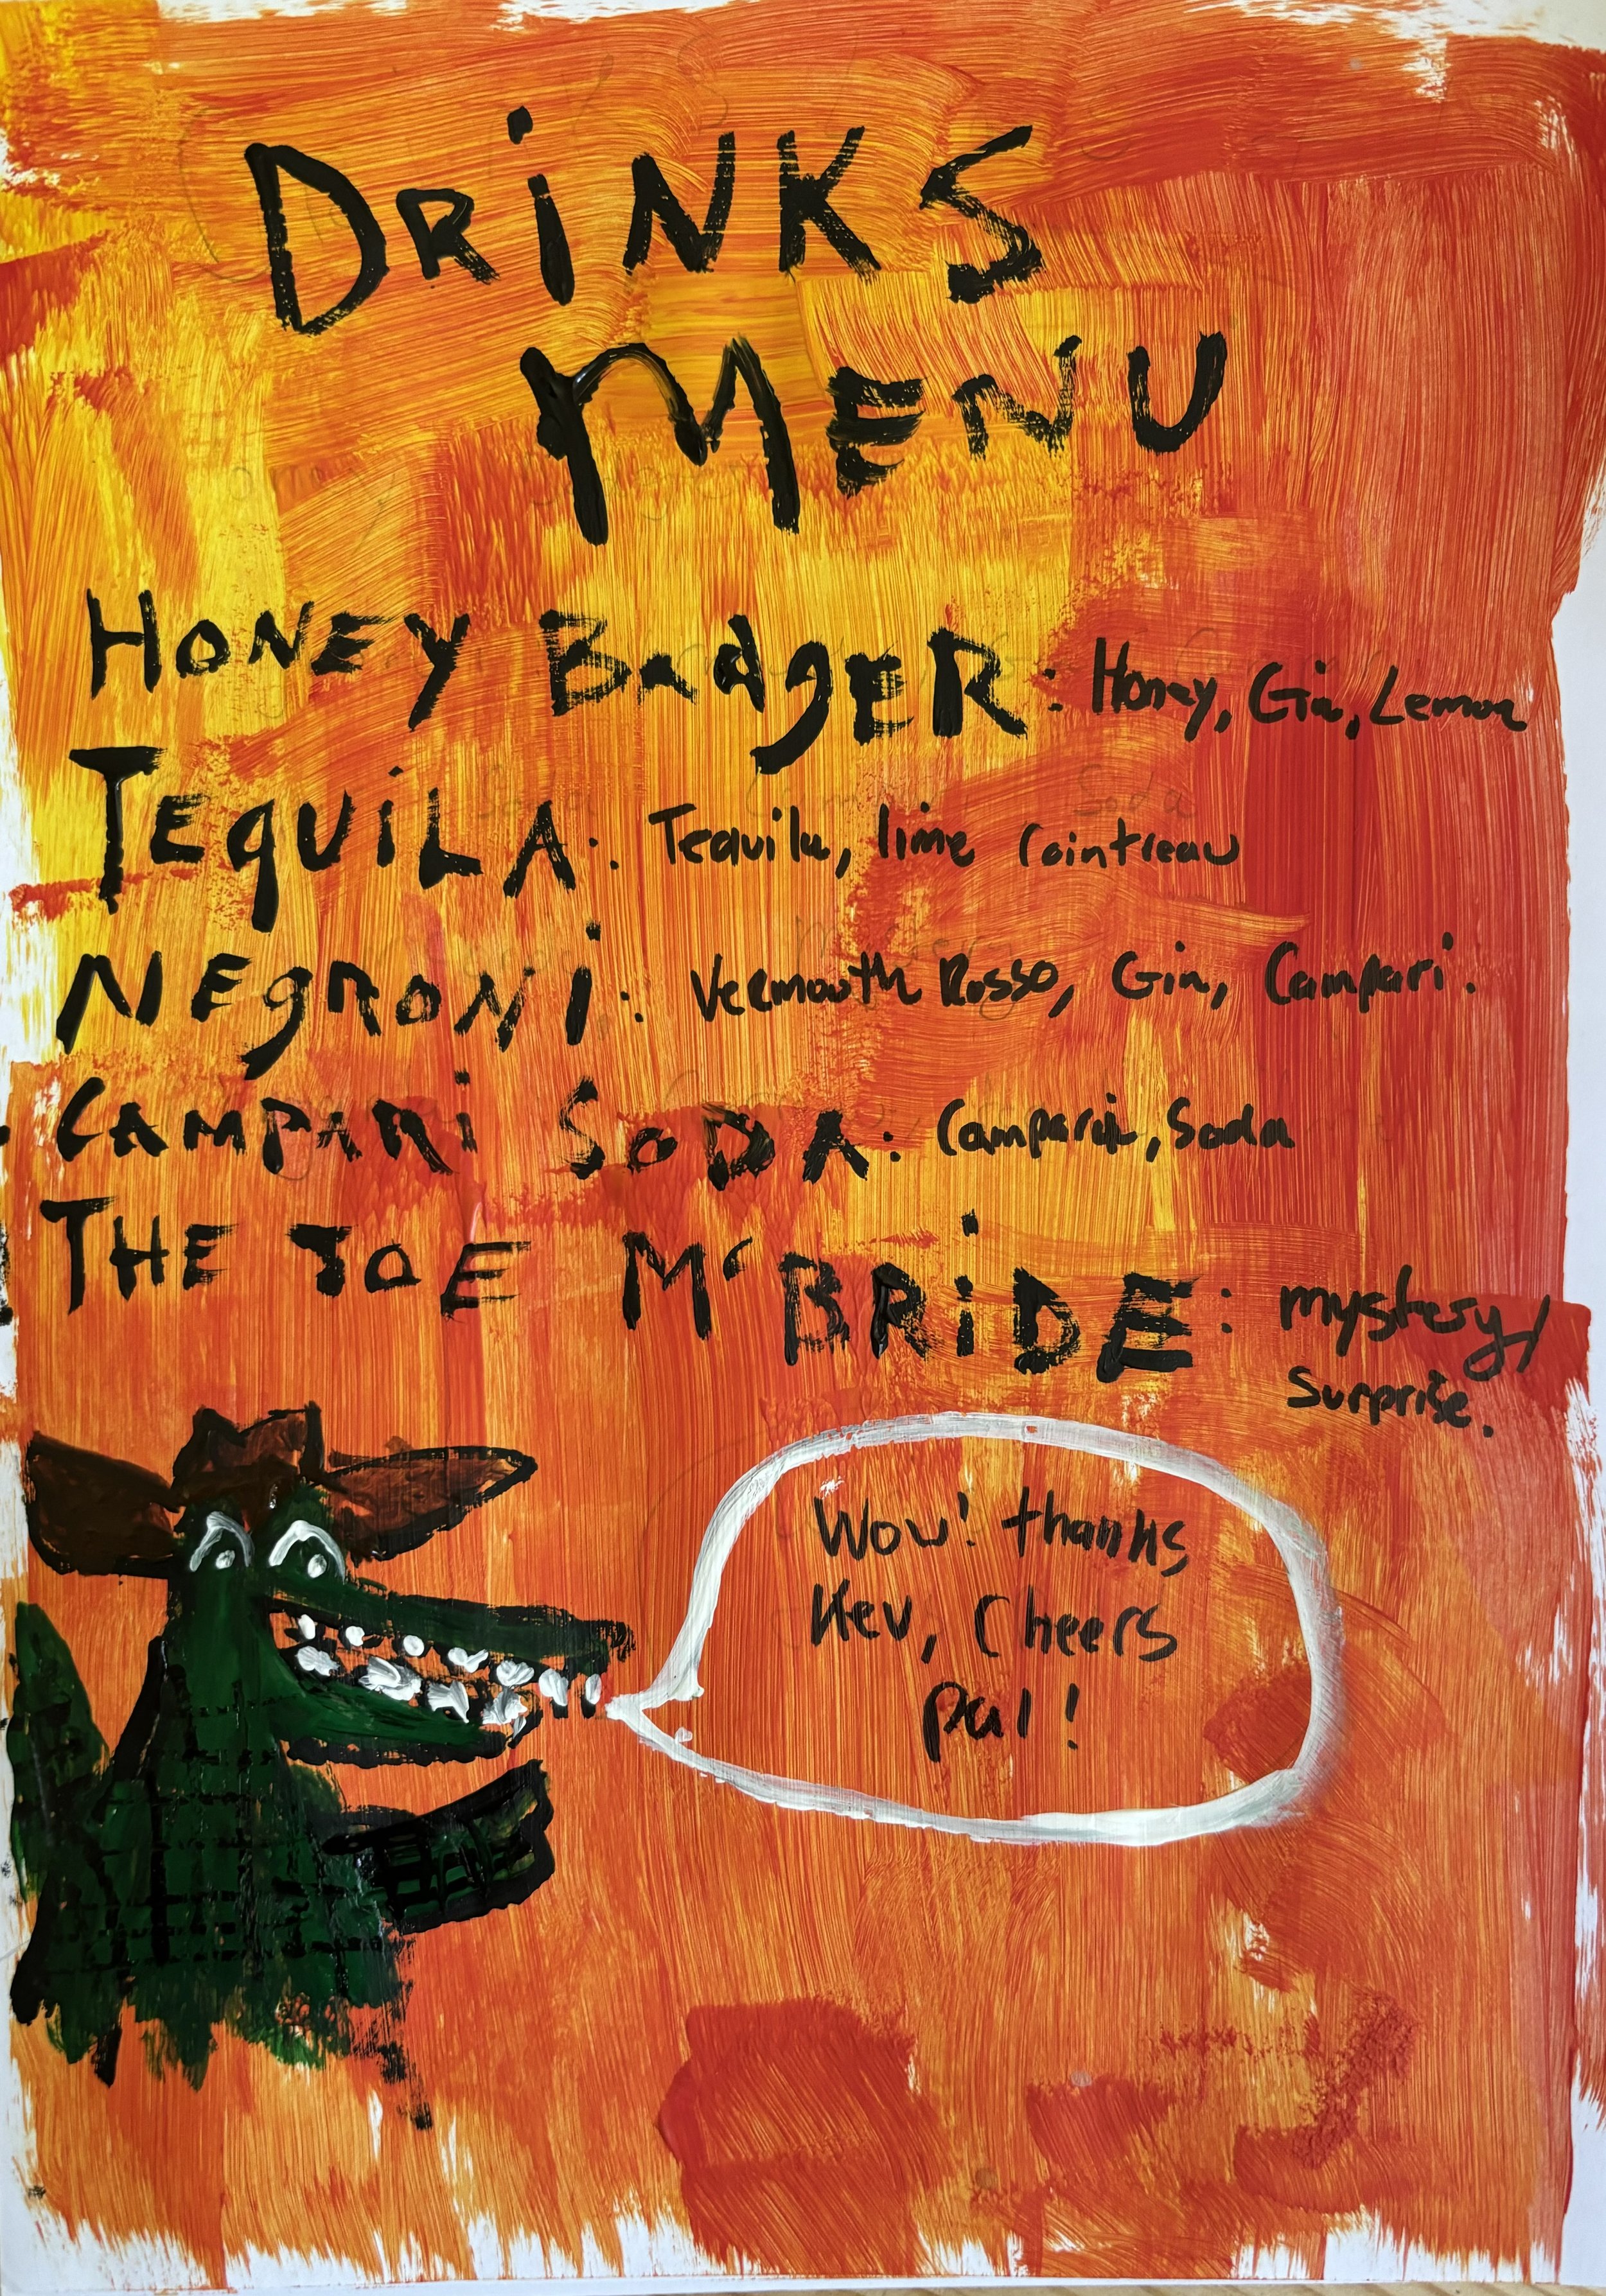 DRiNKS
MENU
HONEY BadgER: Honey, Gin, Lemon
TEqUiLA: Tequila, lime Cointreau
NEgRONi: Vermouth Rosso, Gin, Campari.
CAMPARi SODA: Campari, Soda
THE JOE M'BRiDE: mystery/
Surprise.
Wow! thanks
Kev, Cheers
pal!